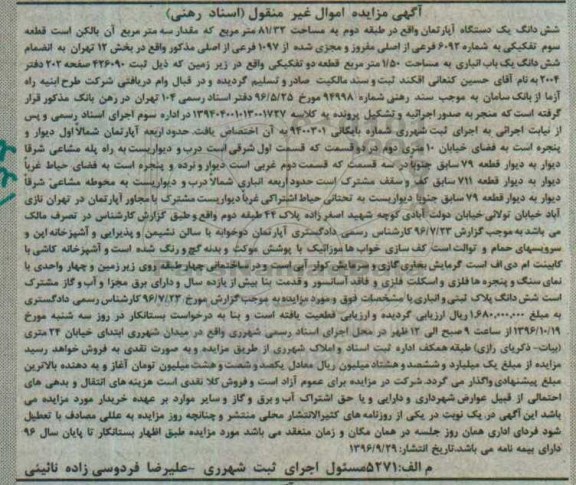 آگهی مزایده اموال غیر منقول (اسناد رهنی)
شش دانگ یک دستگاه آپارتمان واقع در طبقه دوم به مساحت ۸۱/۳۲ متر مربع که مقدار سه متر مربع آن بالکن است قطعه
سوم تفکیکی به شماره ۶۰۹۲ فرعی از اصلی مفروز و مجزی شده از ۱۰۹۷ فرعی از اصلی مذکور واقع در بخش ۱۲ تهران به انضمام
شش دانگ یک باب انباری به مساحت ۱/۵۰ متر مربع قطعه دو تفکیکی واقع در زیر زمین که ذیل ثبت ۴۳۶۰۹۰ صفحه ۲۰۲ دفتر
۲۰۰۴ به نام آقای حسین کنعانی افکند ثبت و سند مالکیت صادر و تسلیم گردیده و در قبال وام دریافتی شرکت طرح ابنیه راه
آزما از بانک سامان به موجب سند رهنی شماره ۹۴۹۹۸ مورخ ۹۶/۵/۲۵ دفتر اسناد رسمی ۱۰۴ تهران در رهن بانک مذکور قرار
گرفته است که منجر به صدور اجرائیه و تشکیل پرونده به کلاسه ۱۳۹۴۰۴۰۰۱۰۱۳۰۰۱۷۲۷ در اداره سوم اجرای اسناد رسمی و پس
از نیابت اجرائی به اجرای ثبت شهرری شماره بایگانی ۹۴۰۰۳۰۱ به آن اختصاص یافت. حدود اربعه آپارتمان شمالا اول دیوار و
پنجره است به فضای خیابان ۱۰ متری دوم در دو قسمت که قسمت اول شرقی است درب و دیواریست به راه پله مشاعی شرقا
دیوار به دیوار قطعه ۷۹ سابق جنوبا در سه قسمت که قسمت دوم غربی است دیوار و نرده و پنجره است به فضای حیاط غربا
دیوار به دیوار قطعه ۷۹۱ سابق کف و سقف مشترک است حدود اربعه انباری شمالا درب و دیواریست به محوطه مشاعی شرقا
دیوار به دیوار قطعه ۷۹ سابق جنوبا دیواریست به تحتانی حیاط اشتراکی غربا دیواریست مشترک با مجاور آپارتمان در تهران نازی
آباد خیابان تولائی خیابان دولت آبادی کوچه شهید اصغر زاده پلاک ۴۴ طبقه دوم واقع و طبق گزارش کارشناس در تصرف مالک
می باشد به موجب گزارش ۹۶/۷/۲۳ کارشناس رسمی دادگستری آپارتمان دوخوابه با سالن نشیمن و پذیرایی و آشپزخانه اپن و
سرویسهای حمام و توالت است کف سازی خواب ها موزائیک با پوشش موکت و بدنه گچ و رنگ شده است و آشپزخانه کاشی با
کابینت ام دی اف است گرمایش بخاری گازی و سرمایش کولر آبی است و در ساختمانی چهار طبقه روی زیر زمین و چهار واحدی با
نمای سنگ و پنجره ها فلزی و اسکلت فلزی و فاقد آسانسور و قدمت بنا بیش از یازده سال و دارای برق مجزا و آب و گاز مشترک
است شش دانگ پلاک ثبتی و انباری با مشخصات فوق و مورد مزایده به موجب گزارش مورخ ۹۶/۷/۲۳ کارشناس رسمی دادگستری
به مبلغ ۱,۶۸۰,۰۰۰,۰۰۰ ریال ارزیابی گردیده و ارزیابی قطعیت یافته است و بنا به درخواست بستانکار در روز سه شنبه مورخ
۱۳۹۶/۱۰/۱۹ از ساعت ۹ صبح الی ۱۲ ظهر در محل اجرای اسناد رسمی شهرری واقع در میدان شهرری ابتدای خیابان ۲۴ متری
(بیات- ذکریای رازی) طبقه همکف اداره ثبت اسناد و املاک شهرری از طریق مزایده و به صورت نقدی به فروش خواهد رسید
مزایده از مبلغ یک میلیارد و ششصد و هشتاد میلیون ریال معادل یکصد و شصت و هشت میلیون تومان آغاز و به دهنده بالاترین
مبلغ پیشنهادی واگذار می گردد. شرکت در مزایده برای عموم آزاد است و فروش کلا نقدی است هزینه های انتقال و بدهی های
احتمالی از قبیل عوارض شهرداری و دارایی و یا حق اشتراک آب و برق و گاز و سایر موارد بر عهده خریدار مورد مزایده می
باشد این آگهی در یک نوبت در یکی از روزنامه های کثیرالانتشار محلی منتشر و چنانچه روز مزایده به عللی مصادف با تعطیل
شود فردای اداری همان روز جلسه در همان مکان و زمان منعقد می باشد مورد مزایده طبق اظهار بستانکار تا پایان سال ۹۶
دارای بیمه نامه می باشد.تاریخ انتشار: ۱۳۹۶/۹/۲۹
م الف:۵۲۷۱ مسئول اجرای ثبت شهرری -علیرضا فردوسی زاده نائینی